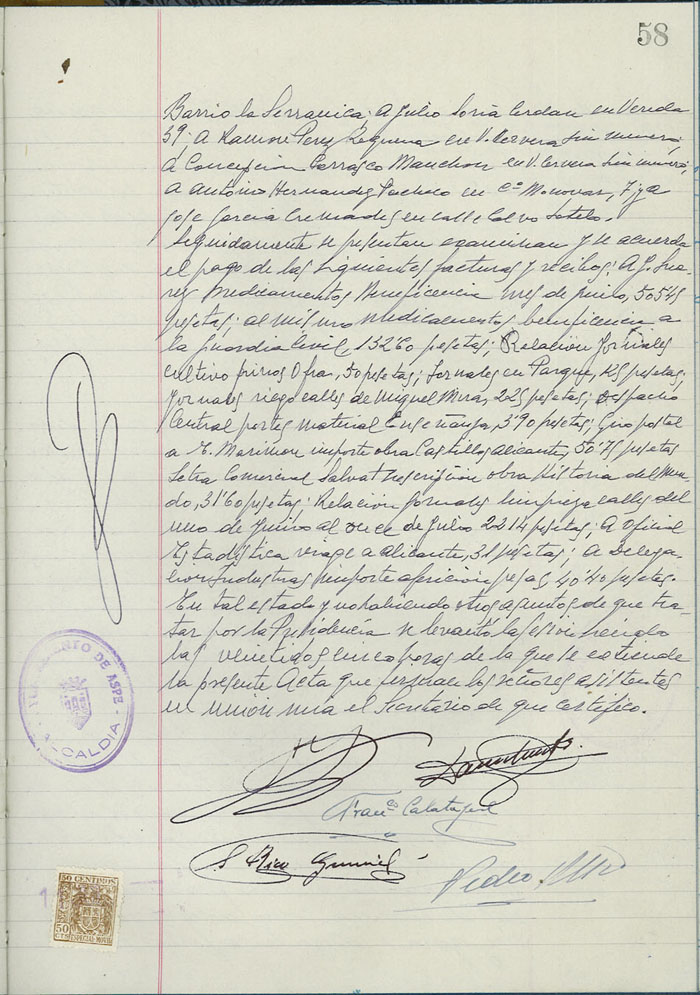 58
Barrio la Serranica; A Julio Soria Cerdan en Vereda
59; A Ramon Perez Requena en V. Cervera sin numero;
A Concepcion Carrasco Manchon en V. Cervera sin numero;
A Antonio Hernandez Pacheco en Cº Monovar, 7 y a
Jose Garcia Cremades en calle Calvo Sotelo.
Seguidamente se presentan examinan y se acuerda
el pago de las siguientes facturas y recibos; A J. Sua-
rez Medicamentos Beneficencia mes de junio, 50545
pesetas; al mismo medicamentos beneficencia a
la guardia Civil, 132'60 pesetas; Relacion Jornales
cultivo pinos Ofra, 50 pesetas; Jornales en Parque, 125 pesetas;
Jornales riego calles de Miguel Mira, 225 pesetas; Despacho
Central portes material Enseñanza, 3'90 pesetas; Giro postal
a E. Marimon importe obra Castillos Alicante, 50'75 pesetas
Letra Comercial Salvat suscripción obra Historia del Mun-
do, 31'60 pesetas; Relacion jornales limpieza calles del
uno de Junio al once de Julio 2214 pesetas; A Oficial
Estadistica viaje a Alicante, 31 pesetas; A Delega-
cion Industrias importe afericion pesas, 40'40 pesetas.
En tal estado y no habiendo otros asuntos de que tra-
tar por la Presidencia se levantó la sesion siendo
las veintidos cinco horas de la que se extiende
la presente Acta que firman los señores asistentes
en union mia el secretario de que certifico.
Franco Calatayud
Rico
Pedro
AYUNTAMIENTO DE ASPE
ALCALDIA
50 CENTIMOS
50
CTS
ESPECIAL MOVIL